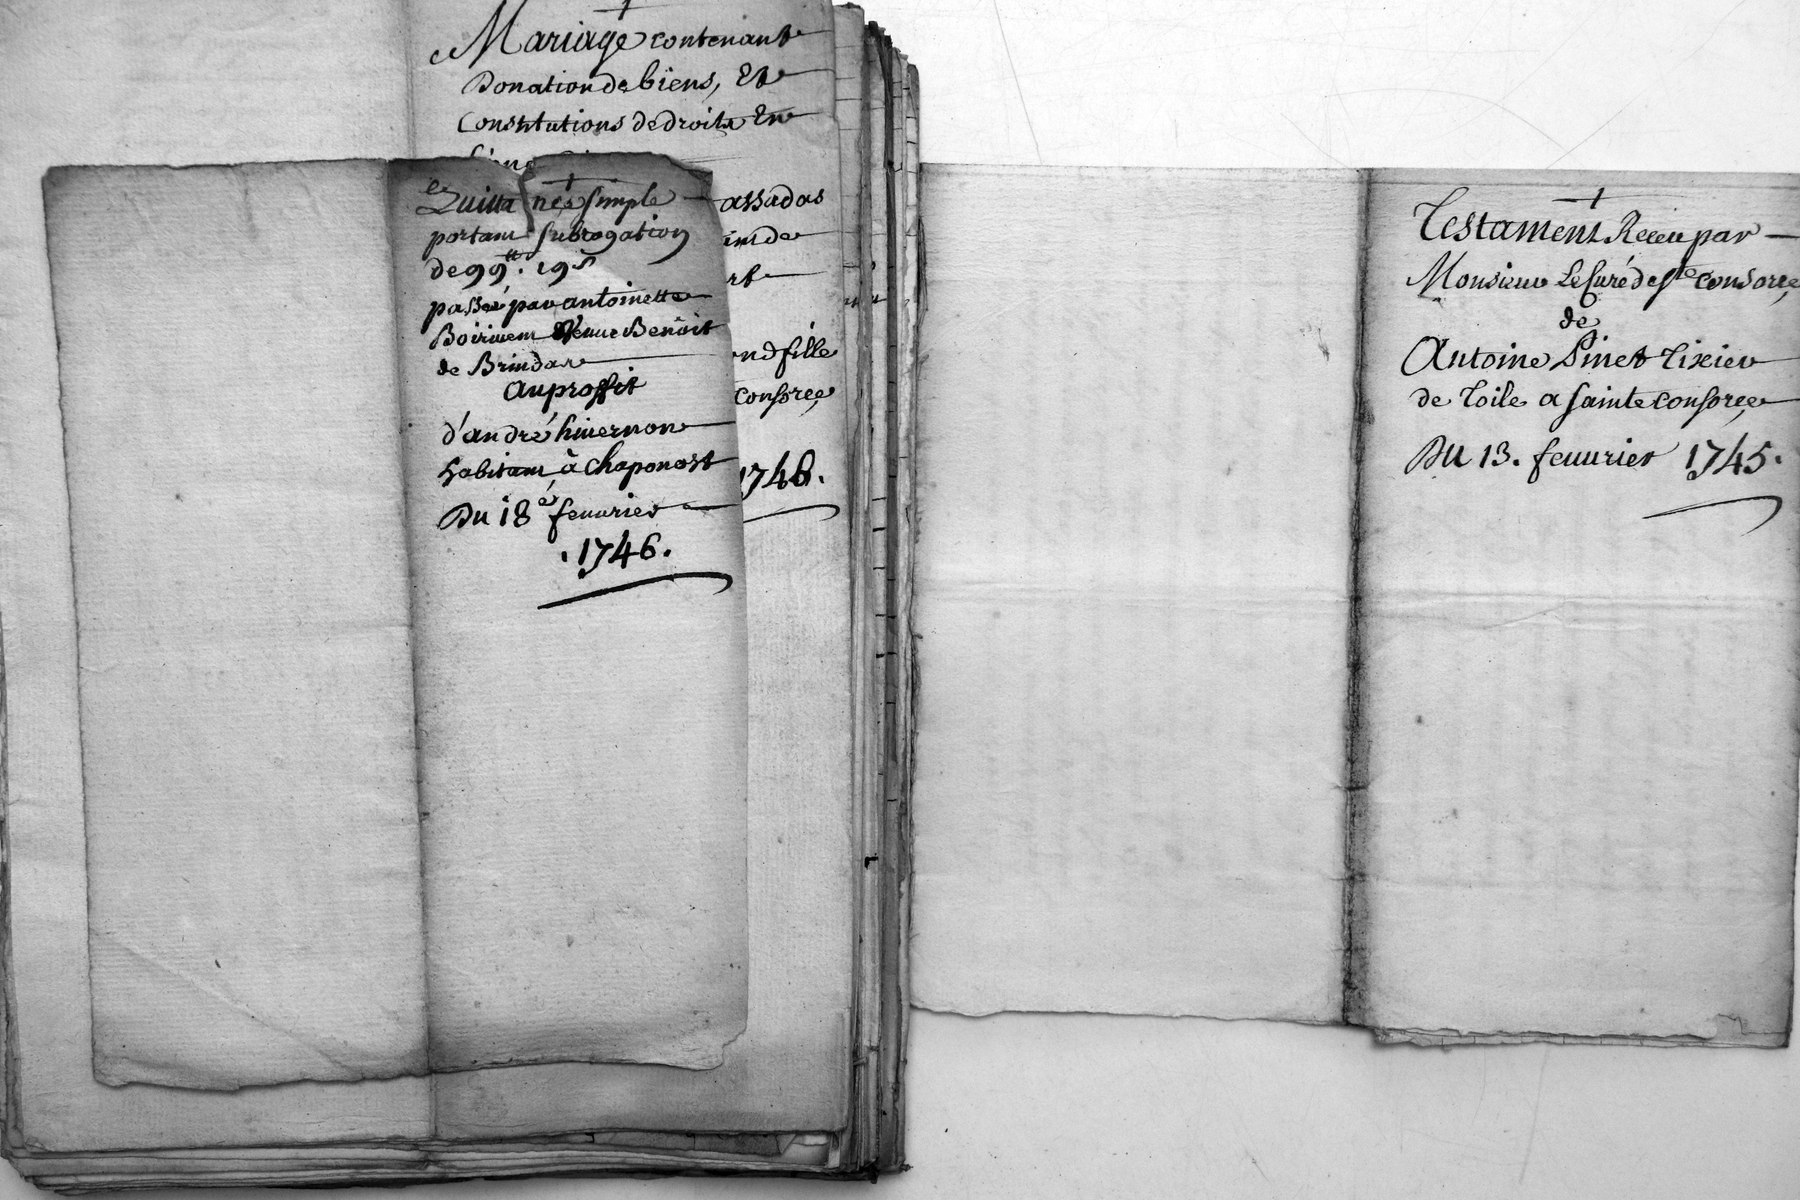 Mariage contenant
Donation de biens, Et
Constitutions de droits En
Quitta nce simple
portant subrogation
de 99tt. 19s
passée par antoinette
Boiriuem Veuue Benoit
de Brindas
Au proffit
d'andré hiuernon
habitant à Chaponost
Du 18e feuurier
.1746.
assadas
ond fille
consorce,
1746.
Testament Receu par
Monsieur Le Curé de Ste Consorce,
de
Antoine Pinet Tixier
de Toile a sainte consorce,
Du 13. feuurier 1745.